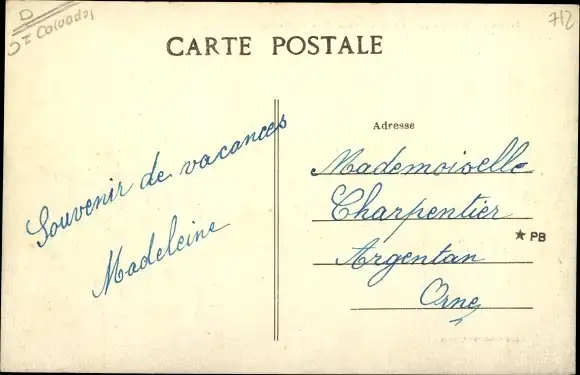 D
Calvados
712
CARTE POSTALE
Souvenir de vacances
Madeleine
Adresse
Mademoiselle
Charpentier
★ PB
Argentan
Orne